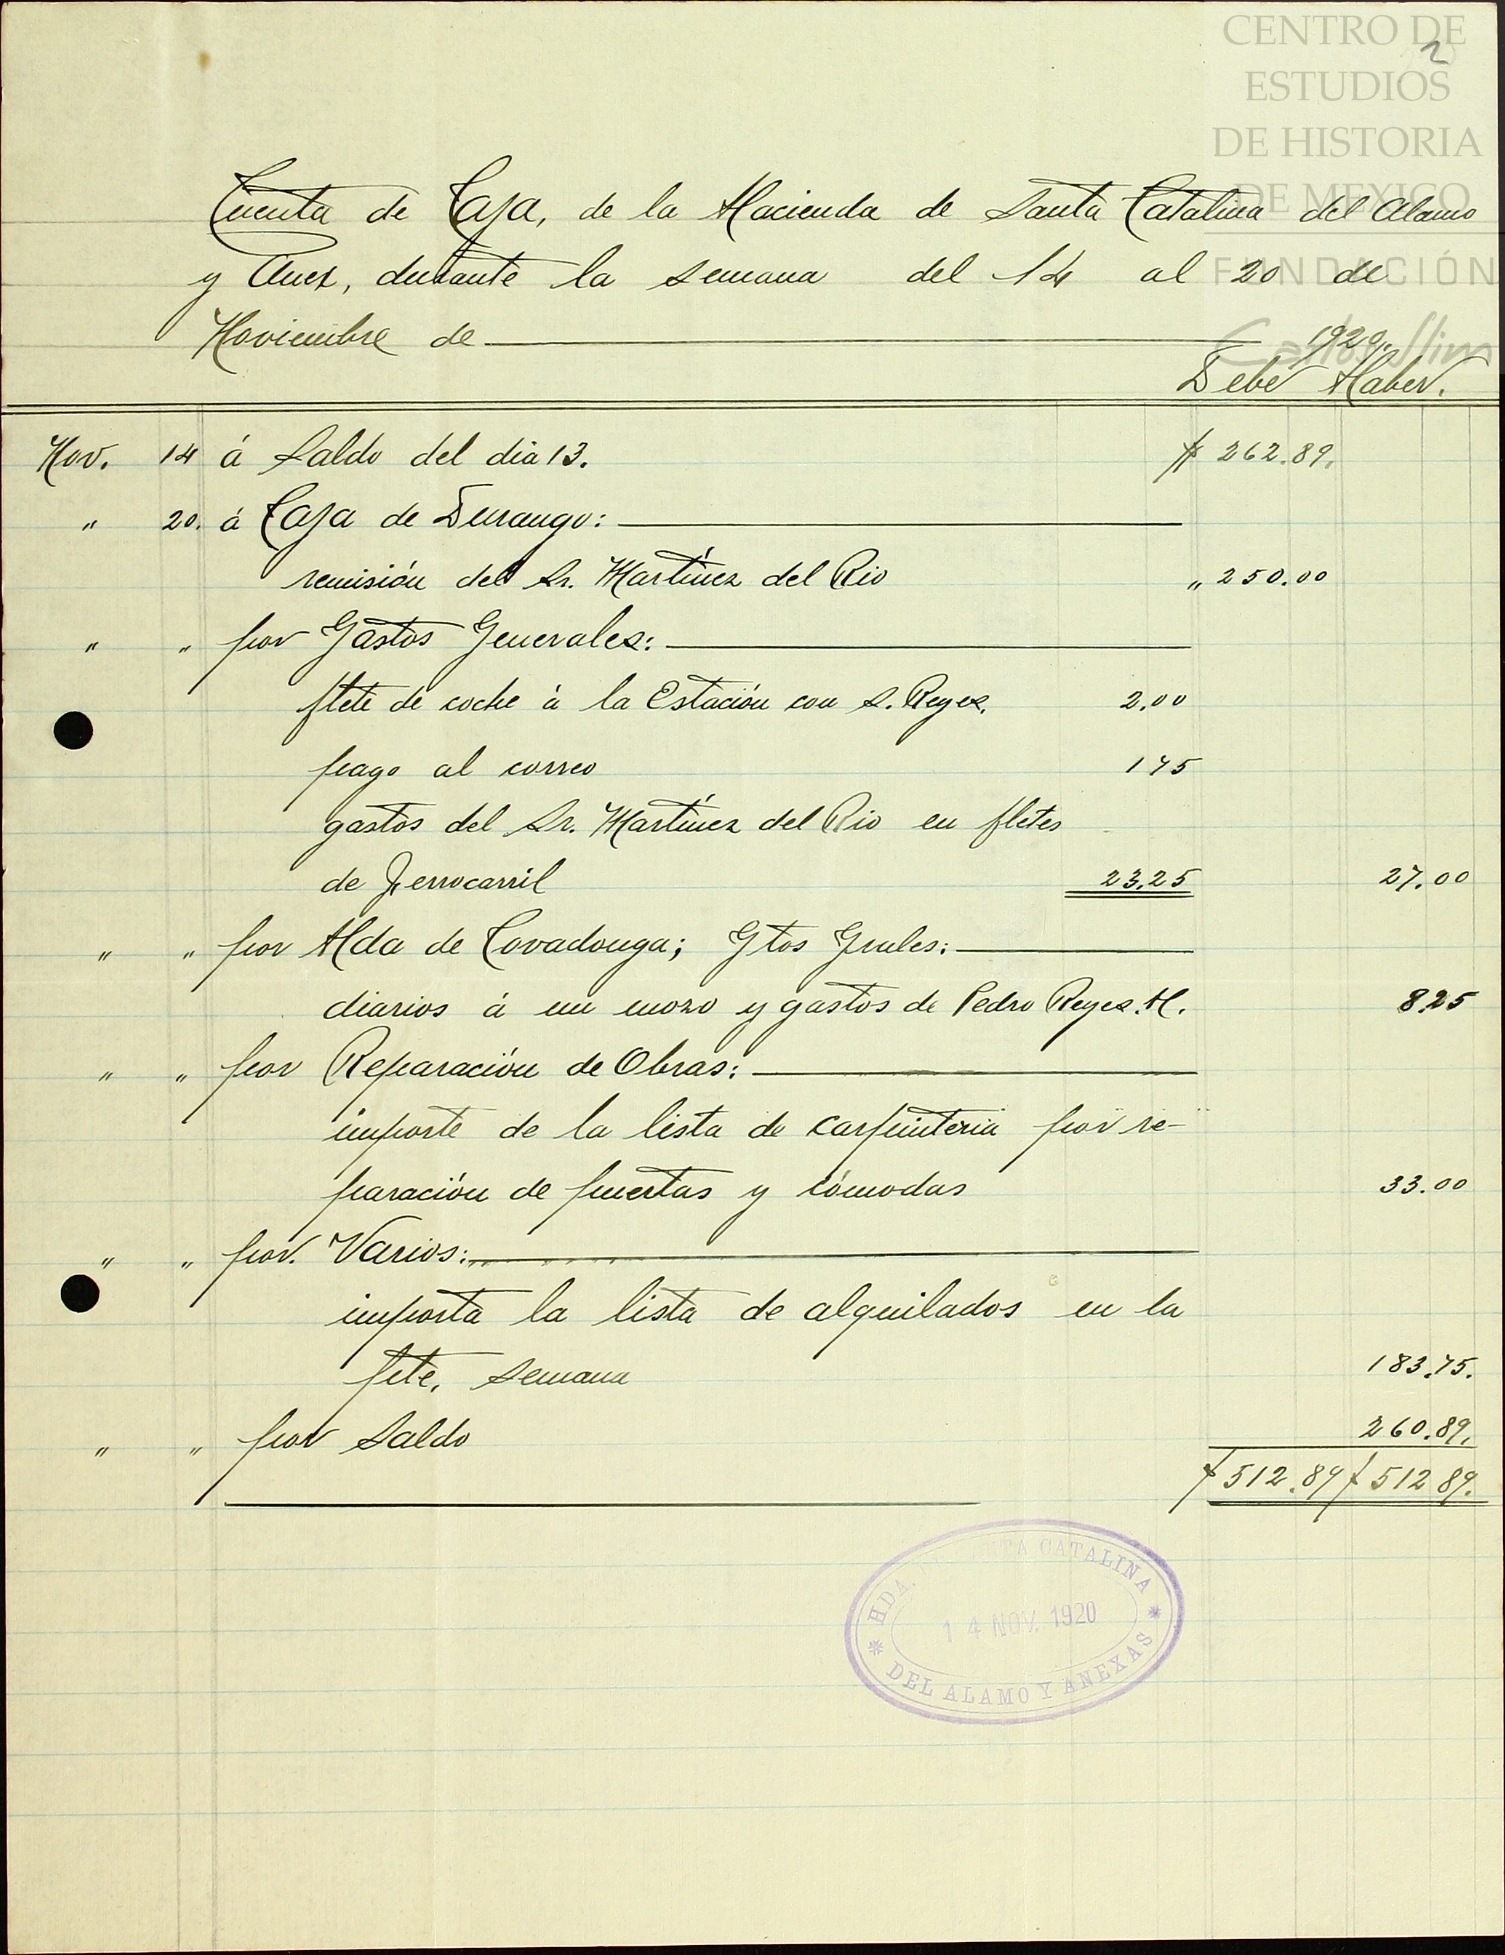 CENTRO DE
2
ESTUDIOS
DE HISTORIA
DE MEXICO
FUNDACIÓN
Carlos Slim
Cuenta de Caja, de la Hacienda de Santa Catalina del Alamo
y Anex, durante la semana del 14 al 20 de
Noviembre de 1920.
Debe Haber.
Nov. 14 á Saldo del dia 13. $ 262.89.
" 20. á Caja de Durango:
remisión del Sr. Martínez del Rio " 250.00
" " por Gastos Generales:
flete de coche á la Estación con S. Reyes. 2.00
pago al correo 175
gastos del Sr. Martínez del Rio en fletes
de Ferrocarril 23.25 27.00
" " por Hda de Covadonga; Gtos Grales:
diarios á un mozo y gastos de Pedro Reyes. H. 8.25
" " por Reparación de Obras:
importe de la lista de carpinteria por re-
paración de puertas y cómodas 33.00
" " por. Varios:
importa la lista de alquilados en la
pte. semana 183.75.
" " por Saldo 260.89.
$ 512.89 $ 512 89.
HDA. SANTA CATALINA
14 NOV. 1920
DEL ALAMO Y ANEXAS